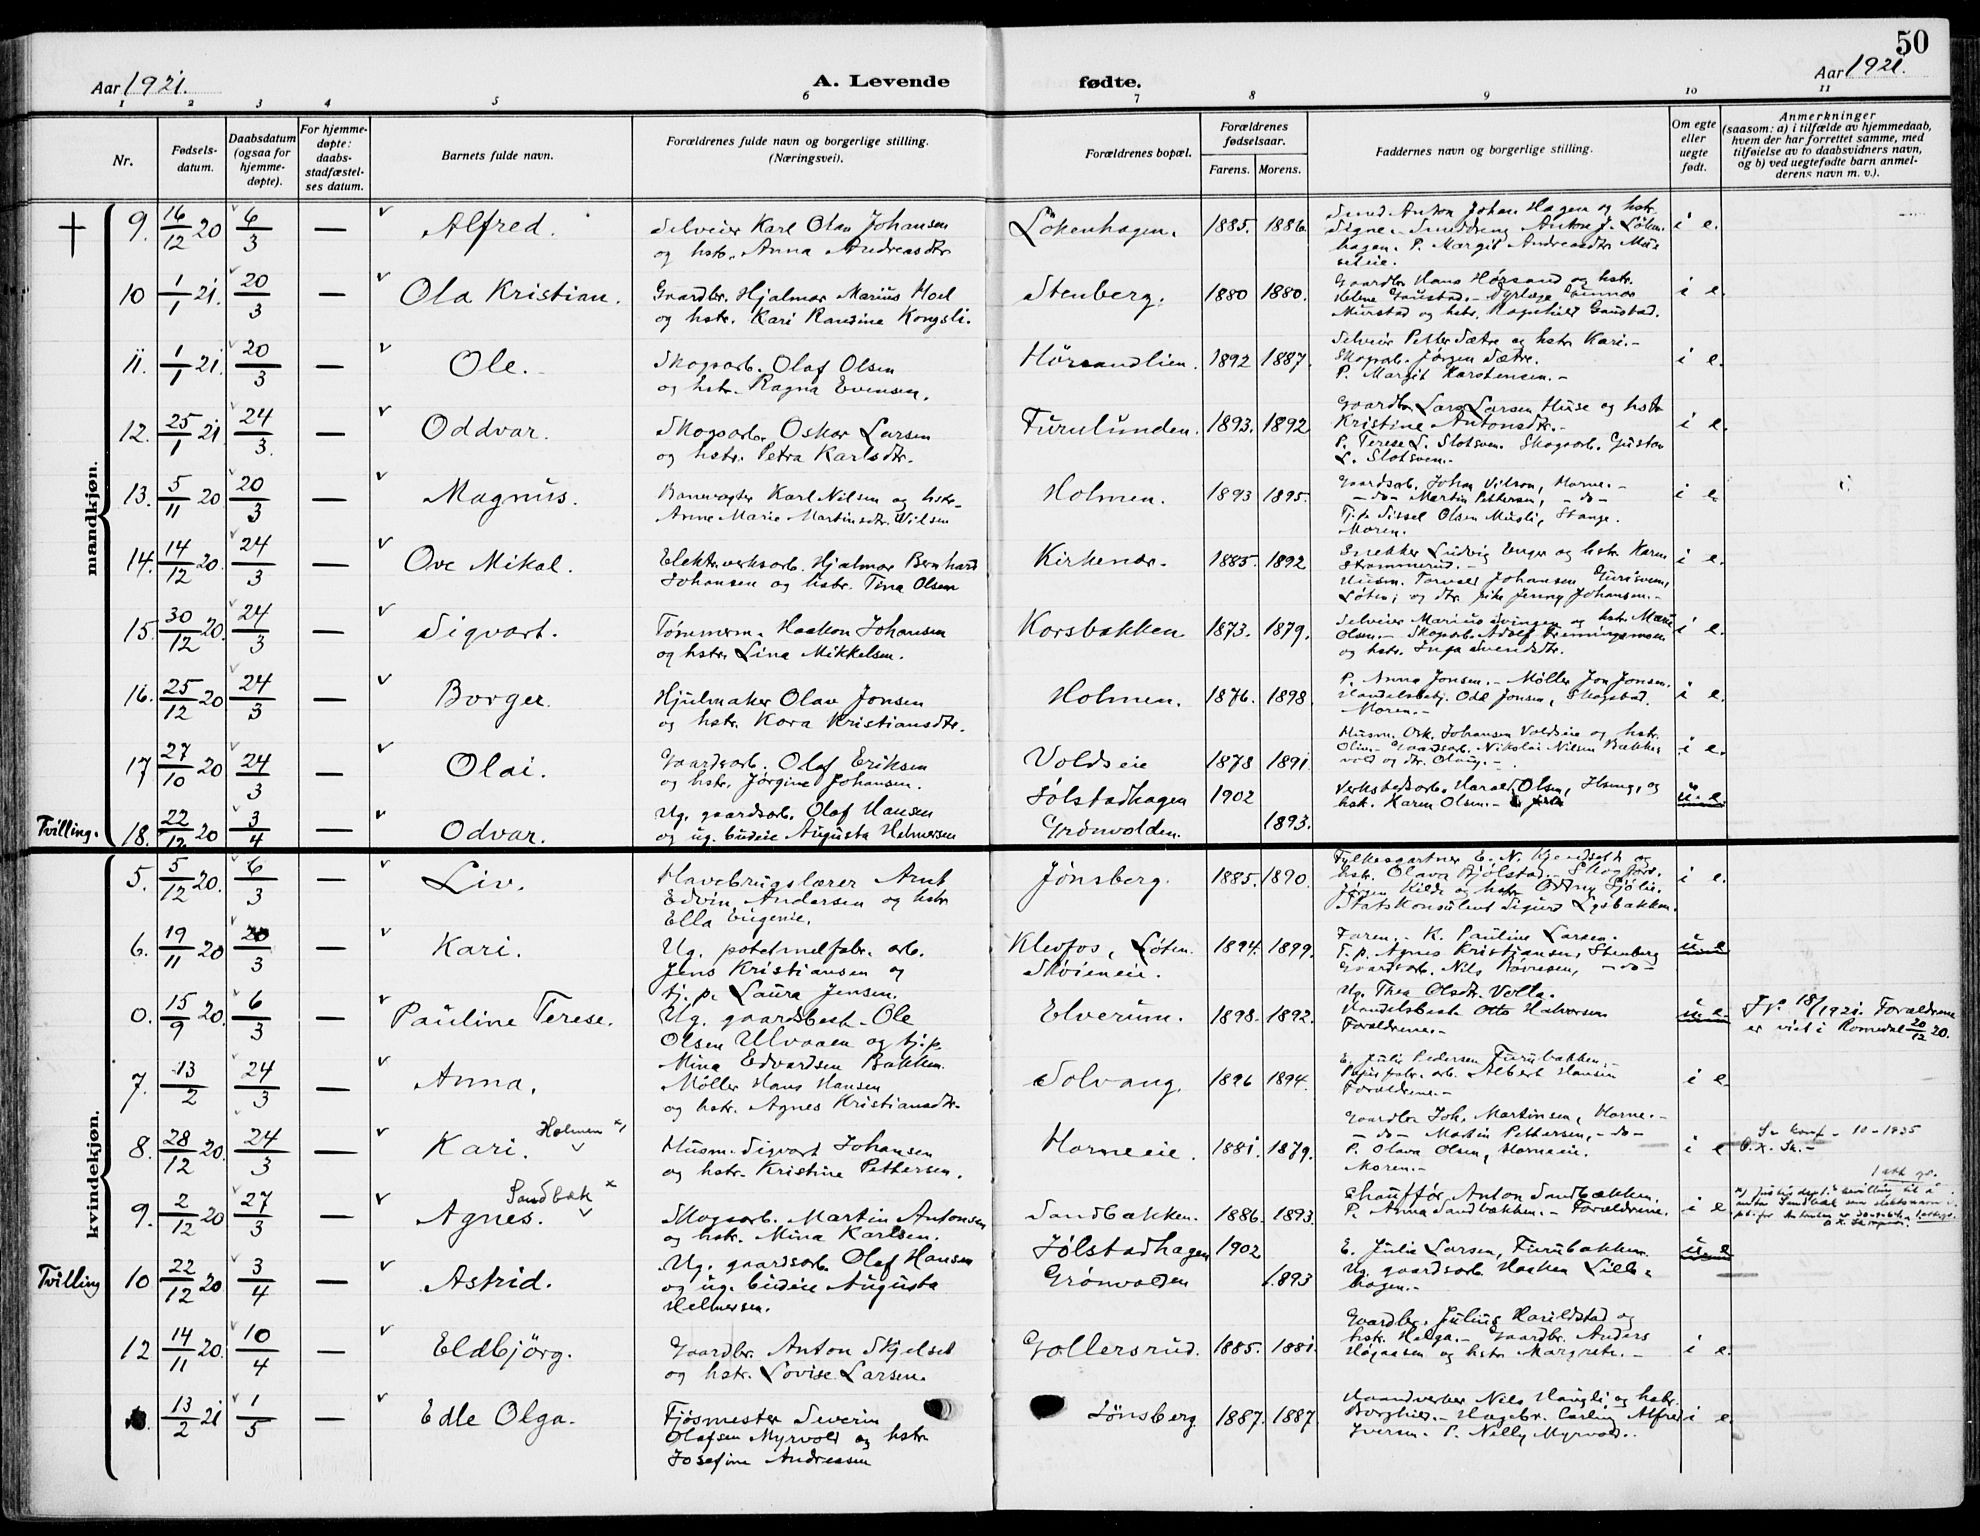 50
Aar 1921. A. Levende fødte. Aar 1921.
1 2 3 4 5 6 7 8 9 10 11
Nr.
Fødsels-
datum.
Daabsdatum
(ogsaa for
hjemme-
døpte).
For hjemme-
døpte:
daabs-
stadfæstel-
ses datum.
Barnets fulde navn.
Forældrenes fulde navn og borgerlige stilling.
(Næringsvei).
Forældrenes bopæl.
Forældrenes
fødselsaar.
Farens. Morens.
Faddernes navn og borgerlige stilling.
Om egte
eller
uegte
født.
Anmerkninger
(saasom: a) i tilfælde av hjemmedaab,
hvem der har forrettet samme, med
tilføielse av to daabsvidners navn,
og b) ved uegtefødte barn anmel-
derens navn m. v.).
mandkjøn.
9. 16/12 20 6/3 — Alfred.
Selveier Karl Olav Johansen
og hstr. Anna Andreasdtr
Løkenhagen. 1885. 1886.
Smed Anton Johan Hagen og hstr.
Signe. - Smeddreng Anton J. Løken-
hagen. P. Margit Andreasdtr
i e.
10 1/1 21. 20/3 — Ola Kristian.
Gaardbr. Hjalmar Marius Hoel
og hstr. Kari Randine Kongsli.
Stenberg. 1880 1880.
Gaardbr. Hans Hørsand og hstr.
Helene Gaustad. - Dyrlæge Gunnar
Murstad og hstr. Ragnhild Gaustad.
i e.
11. 1/1 21. 20/3 — Ole.
Skogsarb. Olaf Olsen
og hstr. Ragna Evensen.
Hørsandlien. 1892 1887.
Selveier Petter Sætre og hstr. Kari. -
Skogsarb. Jørgen Sætre.
P. Margit Karstensen. -
i e.
12. 25/1 21 24/3 — Oddvar.
Skogsarb. Oskar Larsen
og hstr. Petra Karlsdtr.
Furulunden. 1893. 1892
Gaardbr. Lars Larsen Huse og hstr
Kristine Antonsdtr. -
P. Terese L. Slotsven. Skogsarb. Gustav
L. Slotsven. -
i e.
13. 5/11 20 20/3 — Magnus.
Banevogter Karl Nilsen og hstr.
Anne Marie Martinsdtr. Nilsen
Holmen. 1893 1895.
Gaardsarb. Johan Nilson, Horne. -
- do - Martin Pettersen, - do -
Tj.p. Sissel Olsen Musli, Stange.
Moren.
i e
14. 14/12 20. 24/3 — Ove Mikal.
Elektr.verksarb. Hjalmar Bernhard
Johansen og hstr. Tina Olsen
Kirkenær. 1885. 1892
Snekker Ludvig Enger og hstr. Karen
Skammerud. -
Husm. Torvald Johansen
Løten, og dtr. pike Jenny Johansen. -
i e.
15. 30/12 20. 24/3 — Sigvart.
Tømmerm. Haakon Johansen
og hstr. Lina Mikkelsen.
Korsbakken 1873. 1879.
Selveier Marius Svingen og hstr. Marie
Olsen. - Skogsarb. Adolf
og hstr. Inga Svendsdtr.
i e.
16. 25/12 20 24/3 — Borger.
Hjulmaker Olav Jonsen
og hstr. Kora Kristiansdtr.
Holmen. 1876. 1898.
P. Anna Jonsen. - Møller Jon Jonsen.
Handelsbetj. Odd Jonsen, Skogstad.
Moren. -
i e.
17 27/10 20 24/3 — Olai.
Gaardsarb. Olaf Eriksen
og hstr. Jørgine Johansen.
Voldseie 1878 1891
Husm. Osk. Johansen Voldseie og hstr.
Olin. Gaardsarb. Nikolai Nilsen Bakke-
vold og dtr. Olaug. -
i e.
Tvilling. 18. 22/12 20 3/4 — Odvar.
Ug. gaardsarb. Olaf Hansen
og ug. budeie Augusta Helmersen
Jølstadhagen 1902
Grønvolden. 1893.
Verkstedsarb. Harald Olsen, Hsmg, og
hstr. Karen Olsen. -
u. e.
kvindekjøn.
5. 5/12 20. 6/3 — Liv.
Havebrugslærer Arnt
Edvin Andersen og hstr
Ella Eugenie.
Jønsberg. 1885. 1890.
Fylkesgartner E. N.
hstr. Olava Bjølstad. - Skogforv.
Jørgen Kilde og hstr Odtny
Statskonsulent Sigurd Lysbakken.
i e.
6. 19/11 20 20/3 — Kari.
Ug. potetmelfabr. arb.
Jens Kristiansen og
tj. p. Laura Jensen.
Klevfos, Løten. 1894. 1899.
Skøieneie.
Faren. - K. Pauline Larsen.
T. p. Agnes Kristiansen, Stenberg
Gaardsarb. Nils Bovresen, - do -
u e
0. 15/9 20. 6/3 — Pauline Terese.
Ug. gaardsbest. Ole
Olsen Ulvaaen og tj.p.
Mina Edvardsen Bakken.
Elverum. 1898. 1892.
Ug. Thea Olsdtr. Volla.
Handelsbest. Otto Halvorsen
Forældrene. -
u e.
J.Nr 18/1921. Forældrene
er viet i Romedal 20/12 20.
7. 13/2 24/3 — Anna.
Møller Hans Hansen
og hstr. Agnes Kristiansdtr.
Solvang. 1896 1894.
E. Julie Pedersen Furubakken. -
Papirfabr. arb. Albert Hansen
Forældrene. -
i e.
8. 28/12 20. 24/3 — Kari. Holmen x)
Husm. Sigvart Johansen
og hstr. Kristine Pettersen.
Horneeie. 1881. 1879.
Gaardbr. Joh. Martinsen, Horne. -
- do - Martin Pettersen, - do -
P. Olava Olsen, Horneeie.
Moren. -
i e
10 - 1935
9. 2/12 20 27/3 — Agnes. Sandbæk x
Skogsarb. Martin Antonsen
og hstr. Mina Karlsen.
Sandbakken. 1886. 1893.
Chauffør Anton Sandbakken.
P. Anna Sandbakken. - Forældrene.
i e
Tvilling 10 22/12 20 3/4 — Astrid.
Ug. gaardsarb. Olaf Hansen
og ug. budeie Augusta
Helmersen.
Jølstadhagen 1902
Grønvolden 1893
E. Julie Larsen, Furubakken.
Ug. gaardsarb. Haaken Lille-
hagen. -
u. e
12 14/11 20. 10/4 — Eldbjörg.
Gaardbr. Anton Skjelset
og hstr. Lovise Larsen.
Gollersrud. 1885. 1881.
Gaardbr. Julius Harildstad og
hstr. Helga. - Gaardbr. Anders
Høgaasen og hstr. Margrete. -
i e.
13/2 21 1/5 — Edle Olga.
Fjøsmester Severin
Olafsen Myrvold og hstr.
Josefine Andreassen
Jønsberg 1887. 1887.
Haandverker Nils Haugli og hstr.
Borghild. - Hagebr. Carling Alfred
Iversen. P. Nelly Myrvold.
i e.